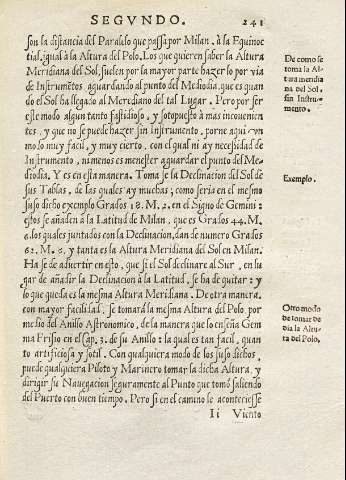 SEGVNDO. 241
son la distancia del Paralelo que passa por Milan, à la Equinoc
tial, igual à la Altura del Polo. Los que quieren saber la Altura
Meridiana del Sol, suelen por la mayor parte hazer lo por via
de Instrumētos, aguardando al punto del Mediodia, que es quan
do el Sol ha llegado al Meridiano del tal Lugar. Pero por ser
este modo algun tanto fastidioso, y sotopuesto à mas inconuenien
tes, y que no se puede hazer sin Instrumento, porne aqui vn
modo muy facil, y muy cierto, con el qual ni ay necesidad de
Instrumento, ni menos es menester aguardar el punto del Me
diodia, Y es en esta manera. Toma se la Declinacion del Sol de
sus Tablas, de las quales ay muchas; como seria en el mesmo
suso dicho exemplo Grados 18. M. 2. en el Signo de Gemini:
estos se añaden à la Latitud de Milan, que es Grados 44. M.
6. los quales juntados con la Declinacion, dan de numero Grados
62. M. 8. y tanta es la Altura Meridiana del Sol en Milan.
Ha se de aduertir en esto, que si el Sol declinare al Sur, en lu
gar de añadir la Declinacion à la Latitud, se ha de quitar: y
lo que queda es la mesma Altura Meridiana. De otra manera,
con mayor facilidad, se tomarà la mesma Altura del Polo, por
medio del Anillo Astronomico, de la manera que lo enseña Gem
ma Frisio en el Cap. 3. de su Anillo: la qual es tan facil, quan
to artificiosa y sotil. Con qualquiera modo de los suso dichos,
puede qualquiera Piloto y Marinero tomar la dicha Altura, y
dirigir su Nauegacion seguramente al Punto que tomò saliendo
del Puerto con buen tiempo. Pero si en el camino le aconteciesse
Ii Viento
De como se
toma la Al-
tura meridia
na del Sol,
sin Instru-
mento.
Exemplo.
Otro modo
de tomar de
dia la Altu-
ra del Polo.